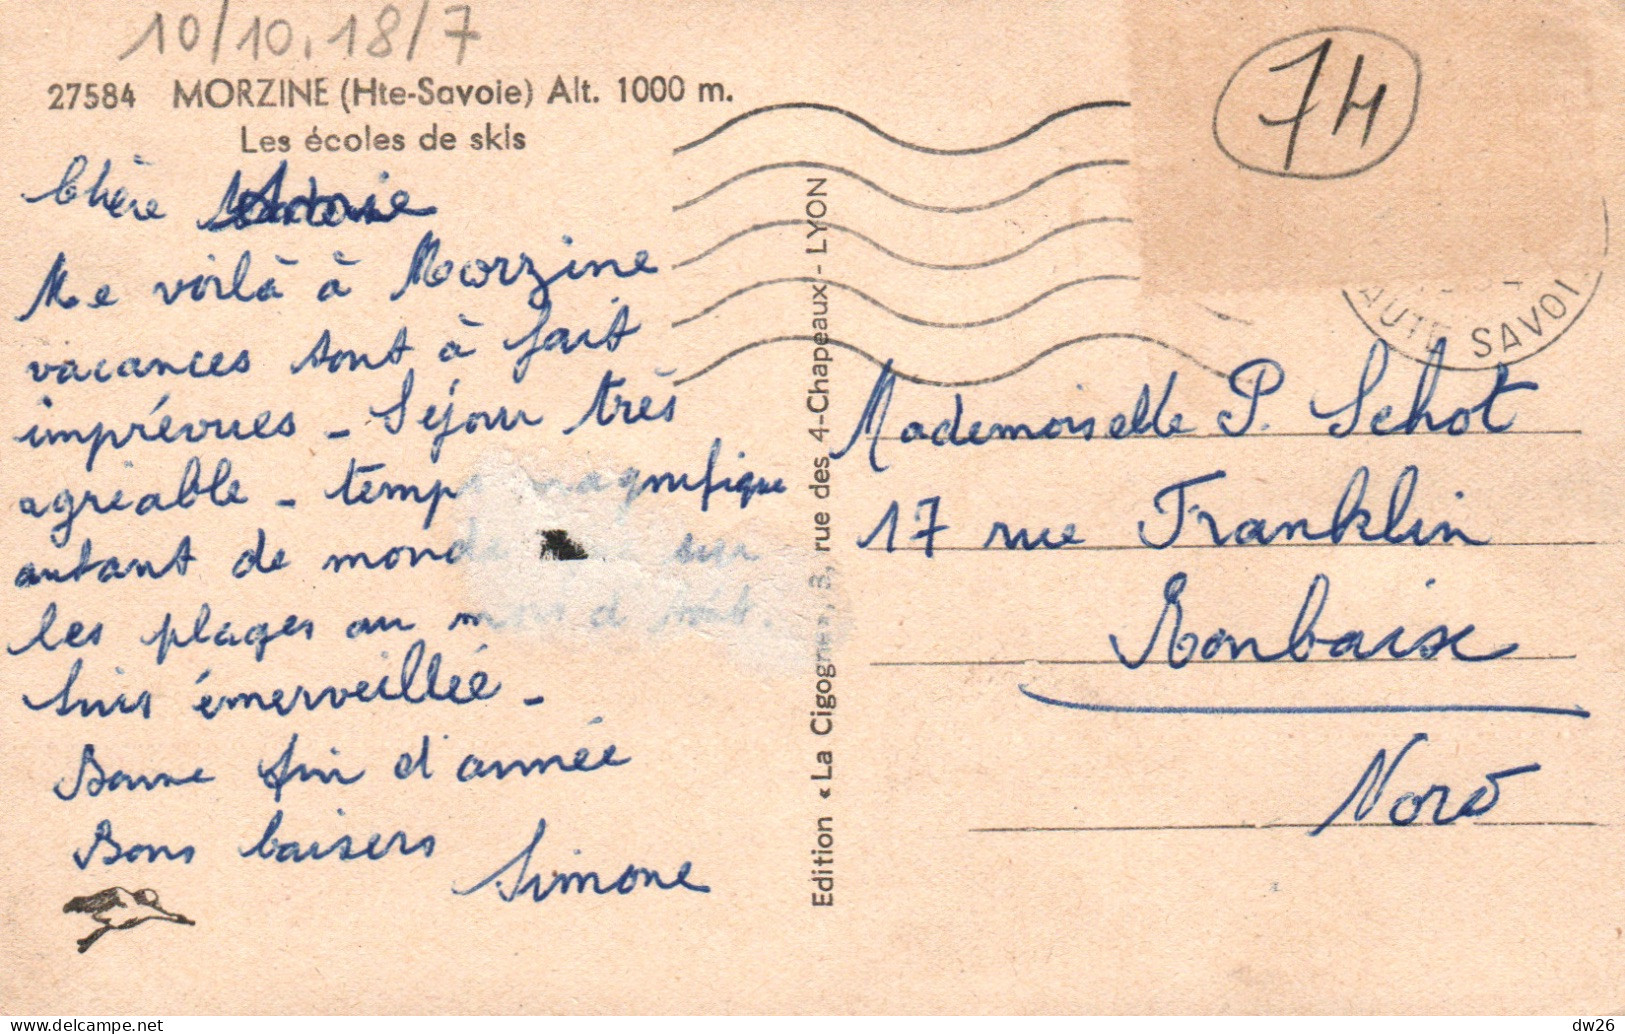 10/10. 18/7
27584 MORZINE (Hte-Savoie) Alt. 1000 m.
Les écoles de skis
74
Chère
Me voilà à Morzine
vacances sont à fait
imprévues - Séjour très
agréable - temps magnifique
autant de monde que sur
les plages au mois d'Août.
Suis émerveillée -
Bonne fin d'année
Bons baisers
Simone
Edition « La Cigogne », 3, rue des 4-Chapeaux - LYON
AUTE SAVOI
Mademoiselle P. Schot
17 rue Franklin
Roubaix
Nord
dw26